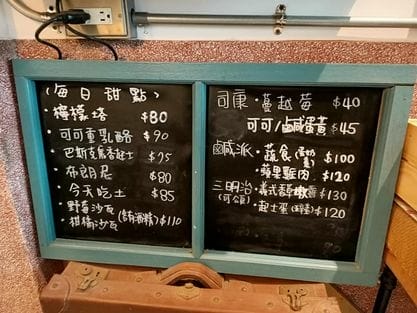 (每日甜點)
・檸檬塔 $80
・可可重乳酪 $90
・巴斯克烏起士 $95
・布朗尼 $80
・今天吃土 $85
・野莓沙瓦
・柑橘沙瓦 (含酒精) $110
司康・蔓越莓 $40
可可/鹹蛋黃 $45
鹹派・蔬食(奶素) $100
・蘋果雞肉 $120
三明治・美式 $130
(可頌)・起士蛋 $120